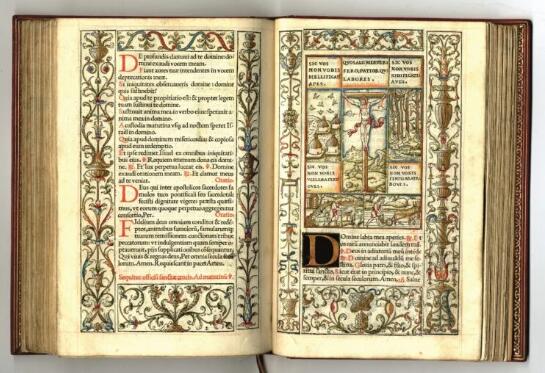 E profundis clamavi ad te domine: do-
mine exaudi vocem meam.
Fiant aures tuæ intendentes in vocem
deprecationis meæ.
Si iniquitates observaveris domine: domine
quis sustinebit?
Quia apud te propitiatio est: & propter legem
tuam sustinui te domine.
Sustinuit anima mea in verbo eius: speravit a-
nima mea in domino.
A custodia matutina usq; ad noctem speret Is-
rael in domino.
Quia apud dominum misericordia: & copiosa
apud eum redemptio.
Et ipse redimet Israel ex omnibus iniquitati-
bus eius. Requiem æternam dona eis domi-
ne. Et lux perpetua luceat eis. Domine
exaudi orationem meam. Et clamor meus
ad te veniat. Oratio.
Deus qui inter apostolicos sacerdotes fa-
mulos tuos pontificali seu sacerdotali
fecisti dignitate vigere: præsta quæsu-
mus, ut eorum quoque perpetuo aggregentur
consortio. Per. Oratio.
Fidelium deus omnium conditor & rede-
ptor, animabus famulorum, famularumque
tuarum remissionem cunctorum tribue
peccatorum: ut indulgentiam quam semper o-
ptaverunt, piis supplicationibus consequantur.
Qui vivis & regnas deus. Per omnia secula secu-
lorum. Amen. Requiescant in pace. Amen.
Sequitur officium sanctæ crucis. Ad matutinas
SIC VOS
NON VOBIS
MELLIFICATIS
APES.
QUOS ALII MESTERE
FERO, PATIOR, QUOS
LABORES.
SIC VOS
NON VOBIS
NIDIFICATIS
AVES.
SIC VOS
NON VOBIS
VELLERA FERTIS
OVES.
SIC VOS
NON VOBIS
FERTIS ARATRA
BOVES.
Domine labia mea aperies. Et
os meum annunciabit laudem tuam.
Deus in adiutorium meum inten-
de. Domine ad adiuvandum me
festina. Gloria patri, & filio, & spi-
ritui sancto. Sicut erat in principio, & nunc, &
semper, & in secula seculorum. Amen.